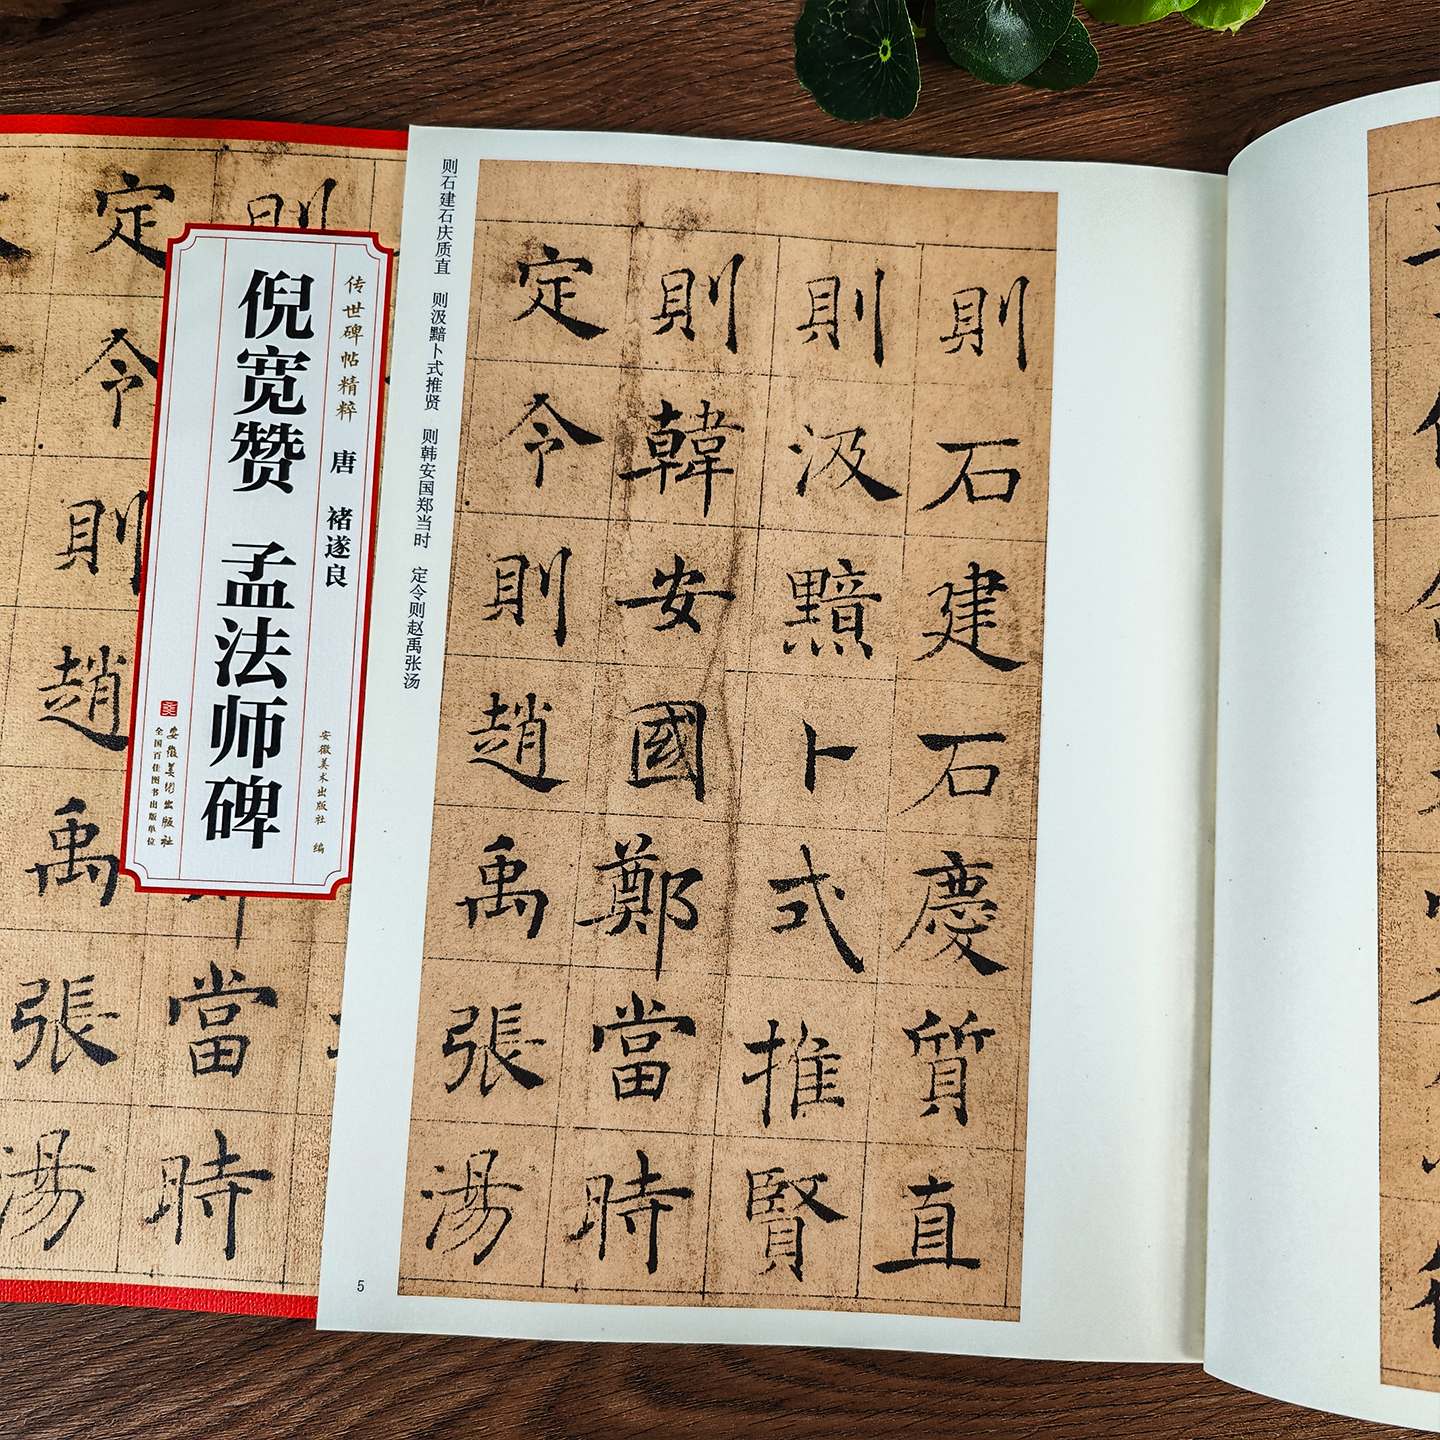 传世碑帖精粹
唐 褚遂良
安徽美术出版社 编
倪宽赞 孟法师碑
安徽美术出版社
全国百佳图书出版单位
則
當時
定令則趙禹張湯
則石建石慶質直
則汲黯卜式推賢
則韓安國鄭當時
定令則趙禹張湯
则石建石庆质直 则汲黯卜式推贤 则韩安国郑当时 定令则赵禹张汤
5